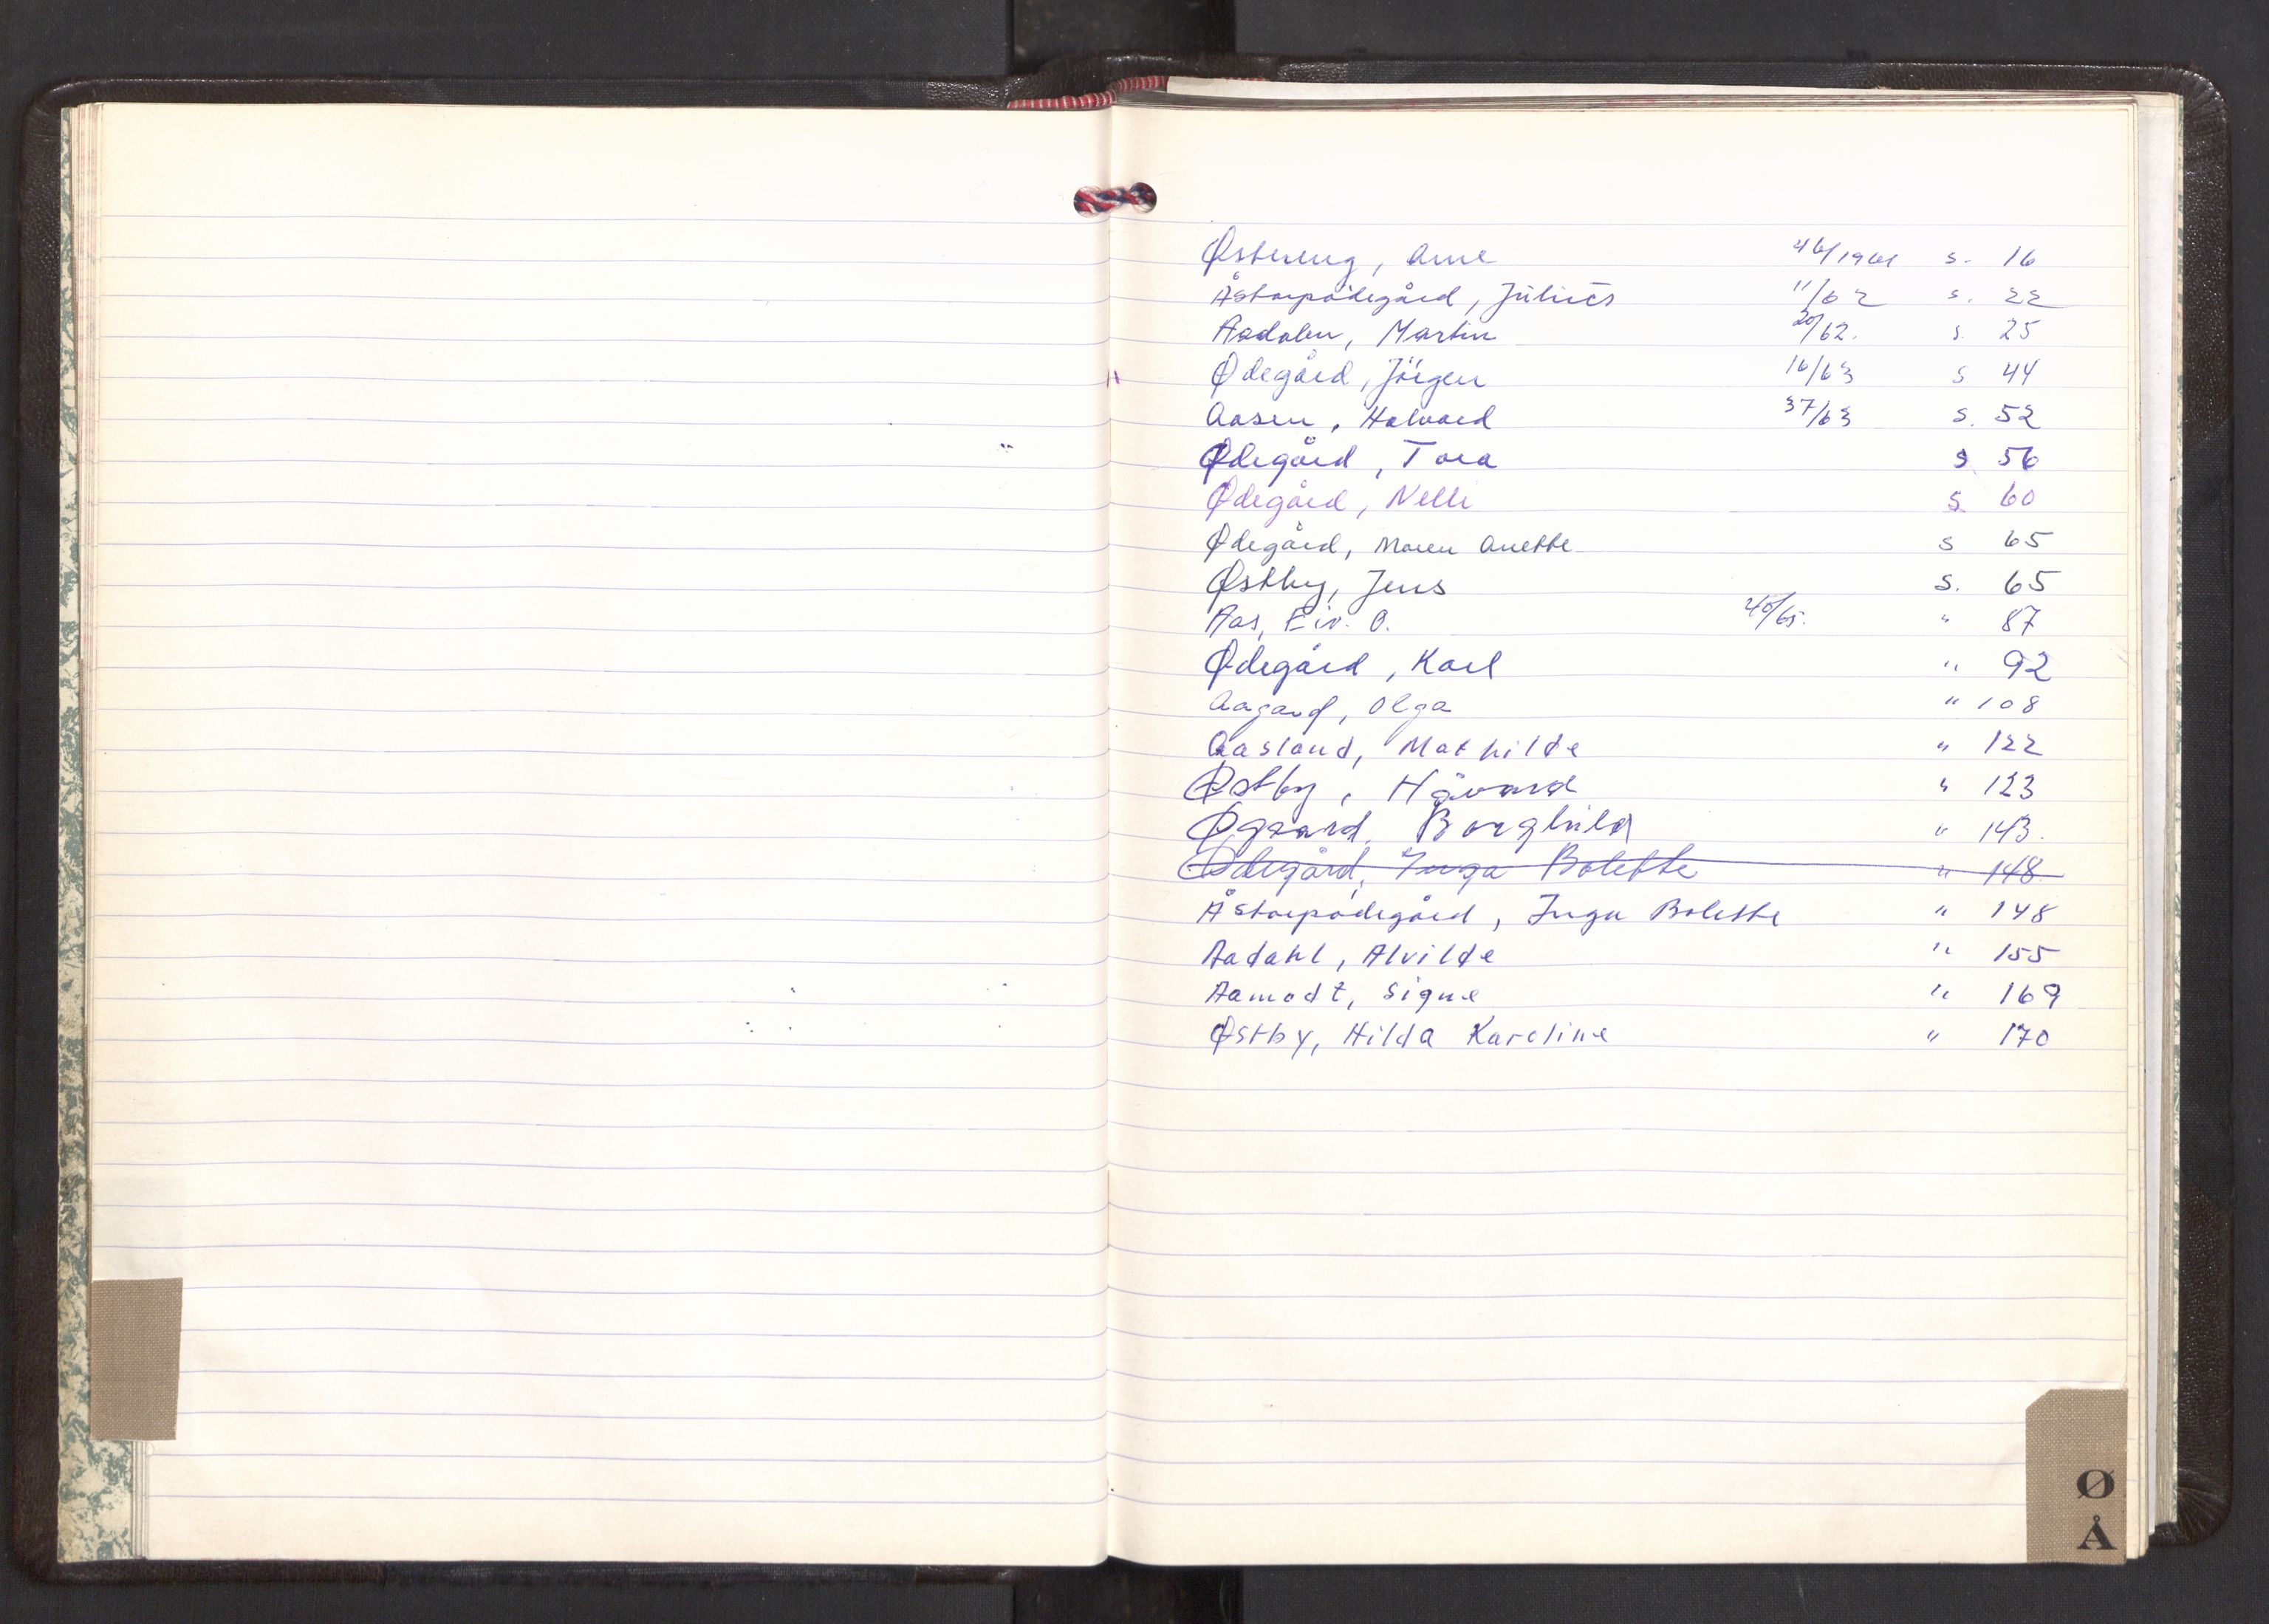 Østereng, Arne 46/1961 s. 16
Åstorpødegård, Julius 11/62 s. 22
Aadalen, Martin 20/62. s. 25
Ødegård, Jörgen 16/63 s 44
Aasen, Halvard 37/63 s. 52
Ødegård, Tora s 56
Ødegård, Nelli s. 60
Ødegård, Maren Anette s 65
Østby, Jens s. 65
Aas, Eiv. O. 40/65. " 87
Ødegård, Karl " 92
Aagard, Olga " 108
Aasland, Mathilde " 122
Østby, Håvard " 123
Øgaard, Borghild " 143.
Ødegård, Inga Bolette " 148
Åstorpødegård, Inga Bolette " 148
Aadahl, Alvilde " 155
Aamodt, Signe " 169
Østby, Hilda Karoline " 170
Ø
Å